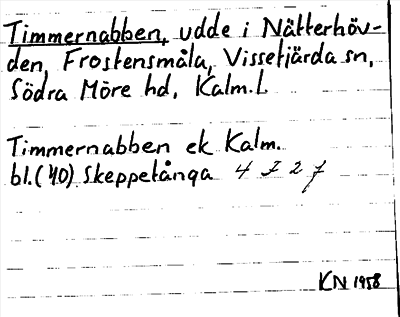 Timmernabben, udde i Nätterhöv-
den, Frostensmåla, Vissefjärda sn,
Södra Möre hd, Kalm.L
Timmernabben ek Kalm.
bl.(40) Skeppetånga 4 J 2 f
KN 1958